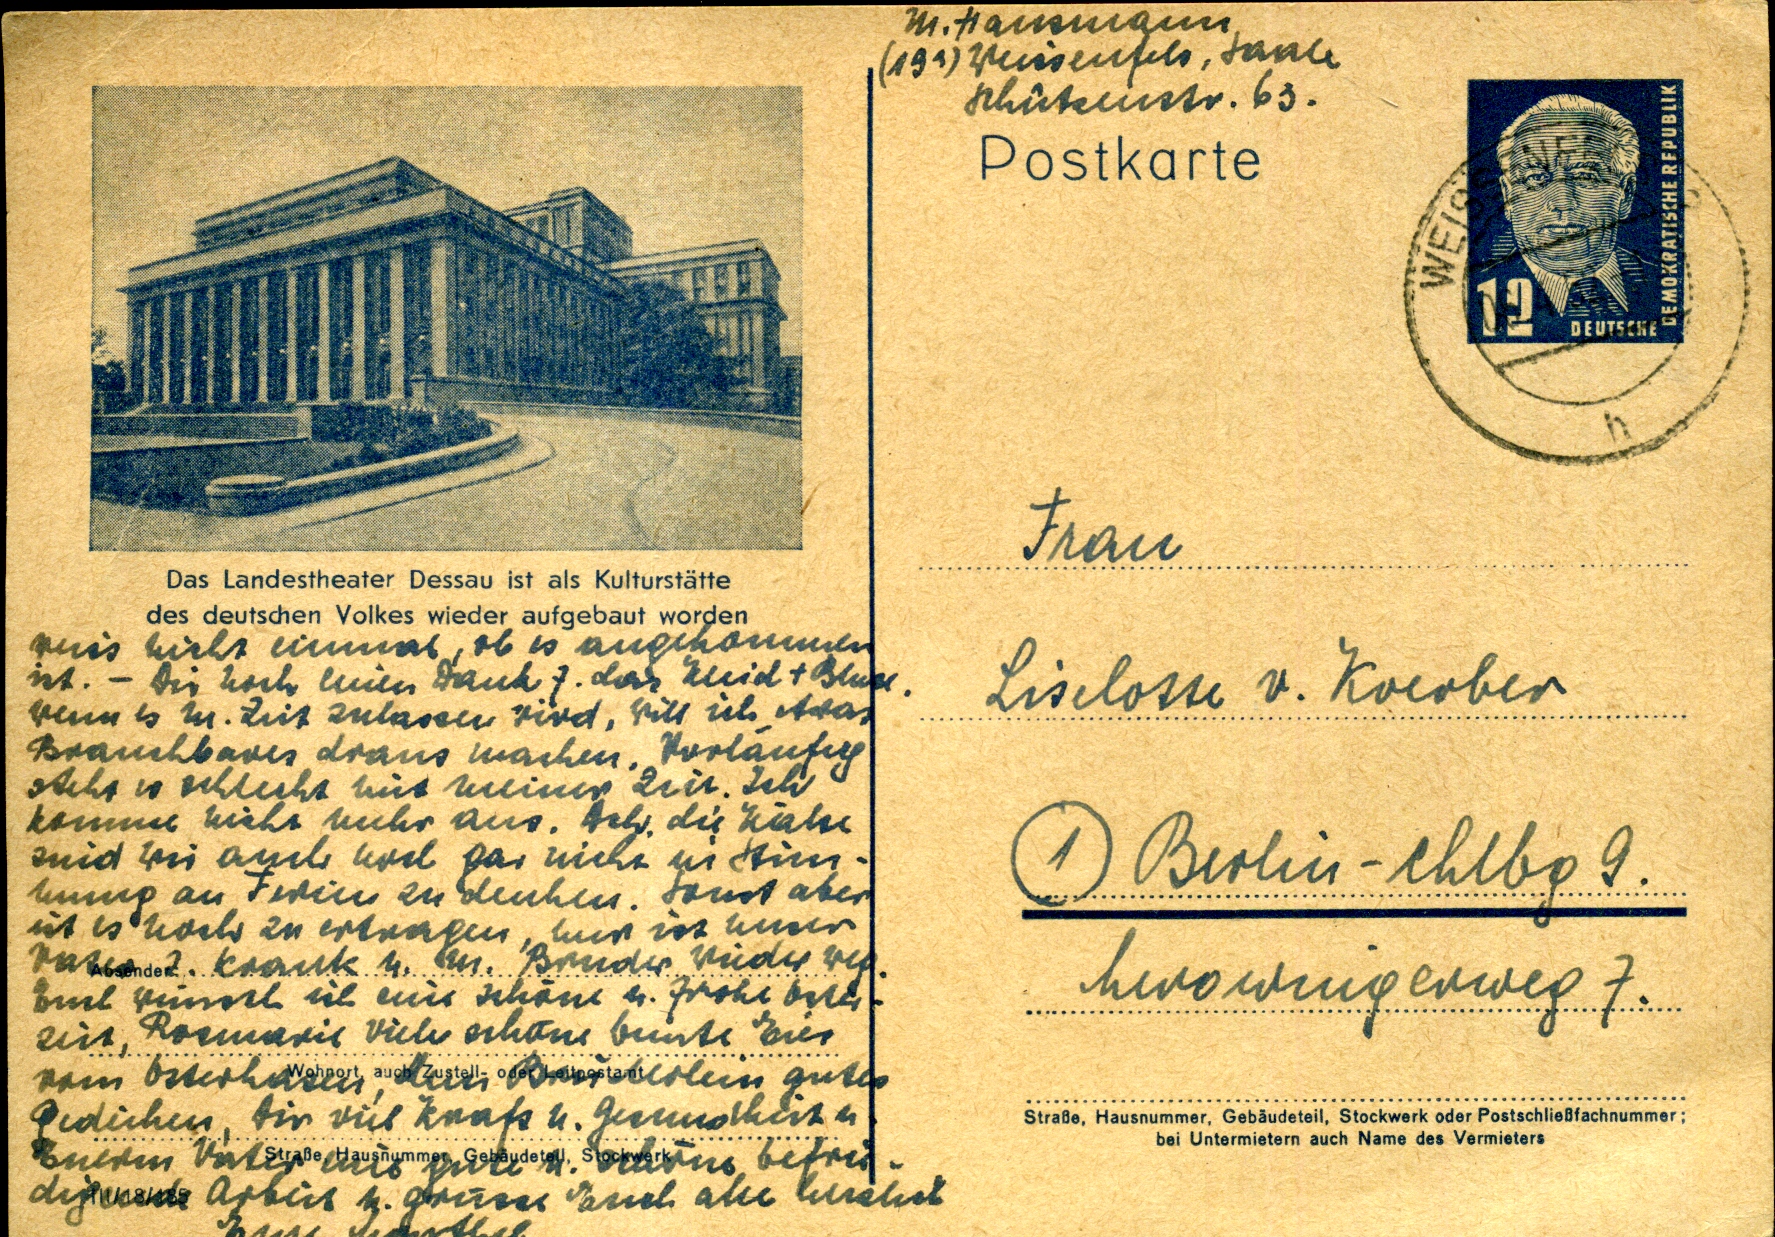 M. Hausmann
(19a) Weissenfels, Saale
Schützenstr. 63.
Postkarte
DEUTSCHE DEMOKRATISCHE REPUBLIK
12
WEISSENFELS
h
Das Landestheater Dessau ist als Kulturstätte
des deutschen Volkes wieder aufgebaut worden
weis nicht einmal, ob es angekommen
ist. – Dir noch einen Dank f. das Kleid + Bluse.
wenn es m. Zeit zulassen wird, will ich etwas
Brauchbares draus machen. Vorläufig
steht es schlecht mit meiner Zeit. Ich
komme nicht mehr aus. Dch. die Kälte
sind wir auch noch gar nicht in Stim-
mung an Ferien zu denken. Sonst aber
ist es noch zu ertragen, nur ist unser
Vater z. krank u. m. Bruder wieder weg.
Euch wünsch ich eine schöne u. frohe Oster-
zeit, Rosmarie viele schöne bunte Eier
vom Osterhasen, dem Brüderlein gutes
Gedeihen, Dir viel Kraft u. Gesundheit u.
Euerm Vater eine gute u. schöne befrie-
digende Arbeit u. grüsse Euch alle herzlich
Eure
Absender:
Wohnort, auch Zustell- oder Leitpostamt
Straße, Hausnummer, Gebäudeteil, Stockwerk
III/18/185
Frau
Liselotte v. Koerber
1 Berlin-Chlbg 9.
Merowingerweg 7.
Straße, Hausnummer, Gebäudeteil, Stockwerk oder Postschließfachnummer;
bei Untermietern auch Name des Vermieters